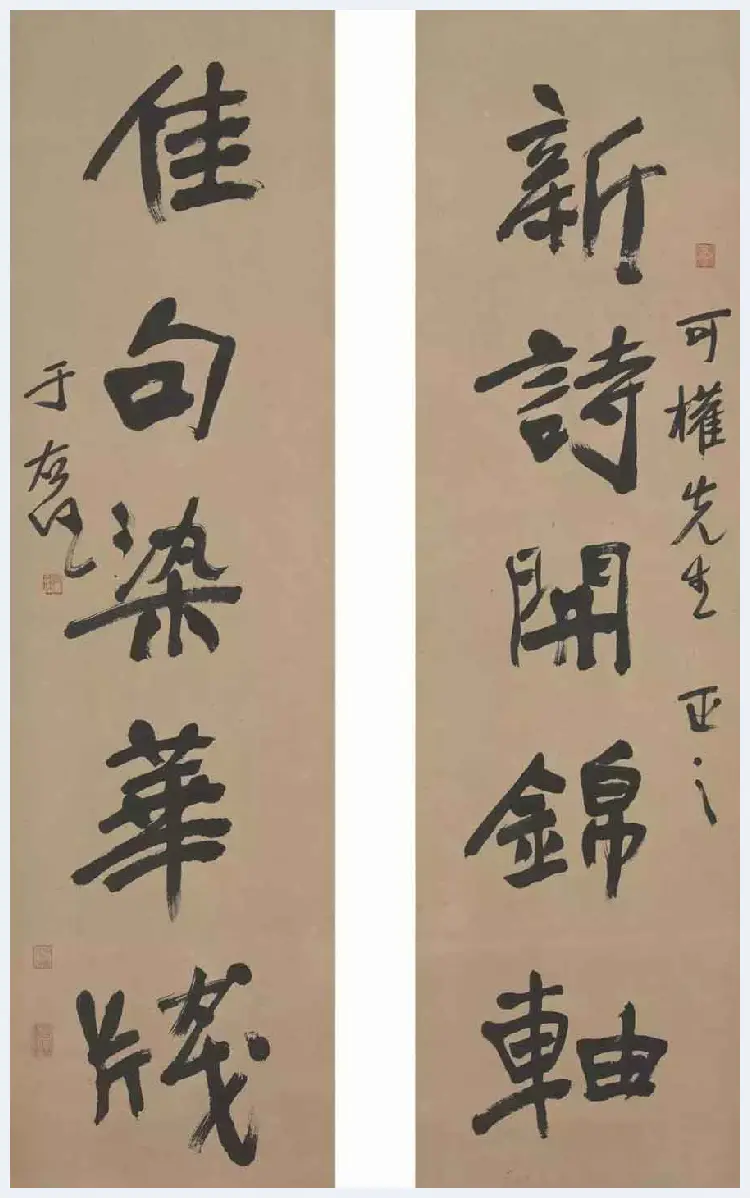 可權先生 正之
新詩開錦軸
佳句染華牋
于右任